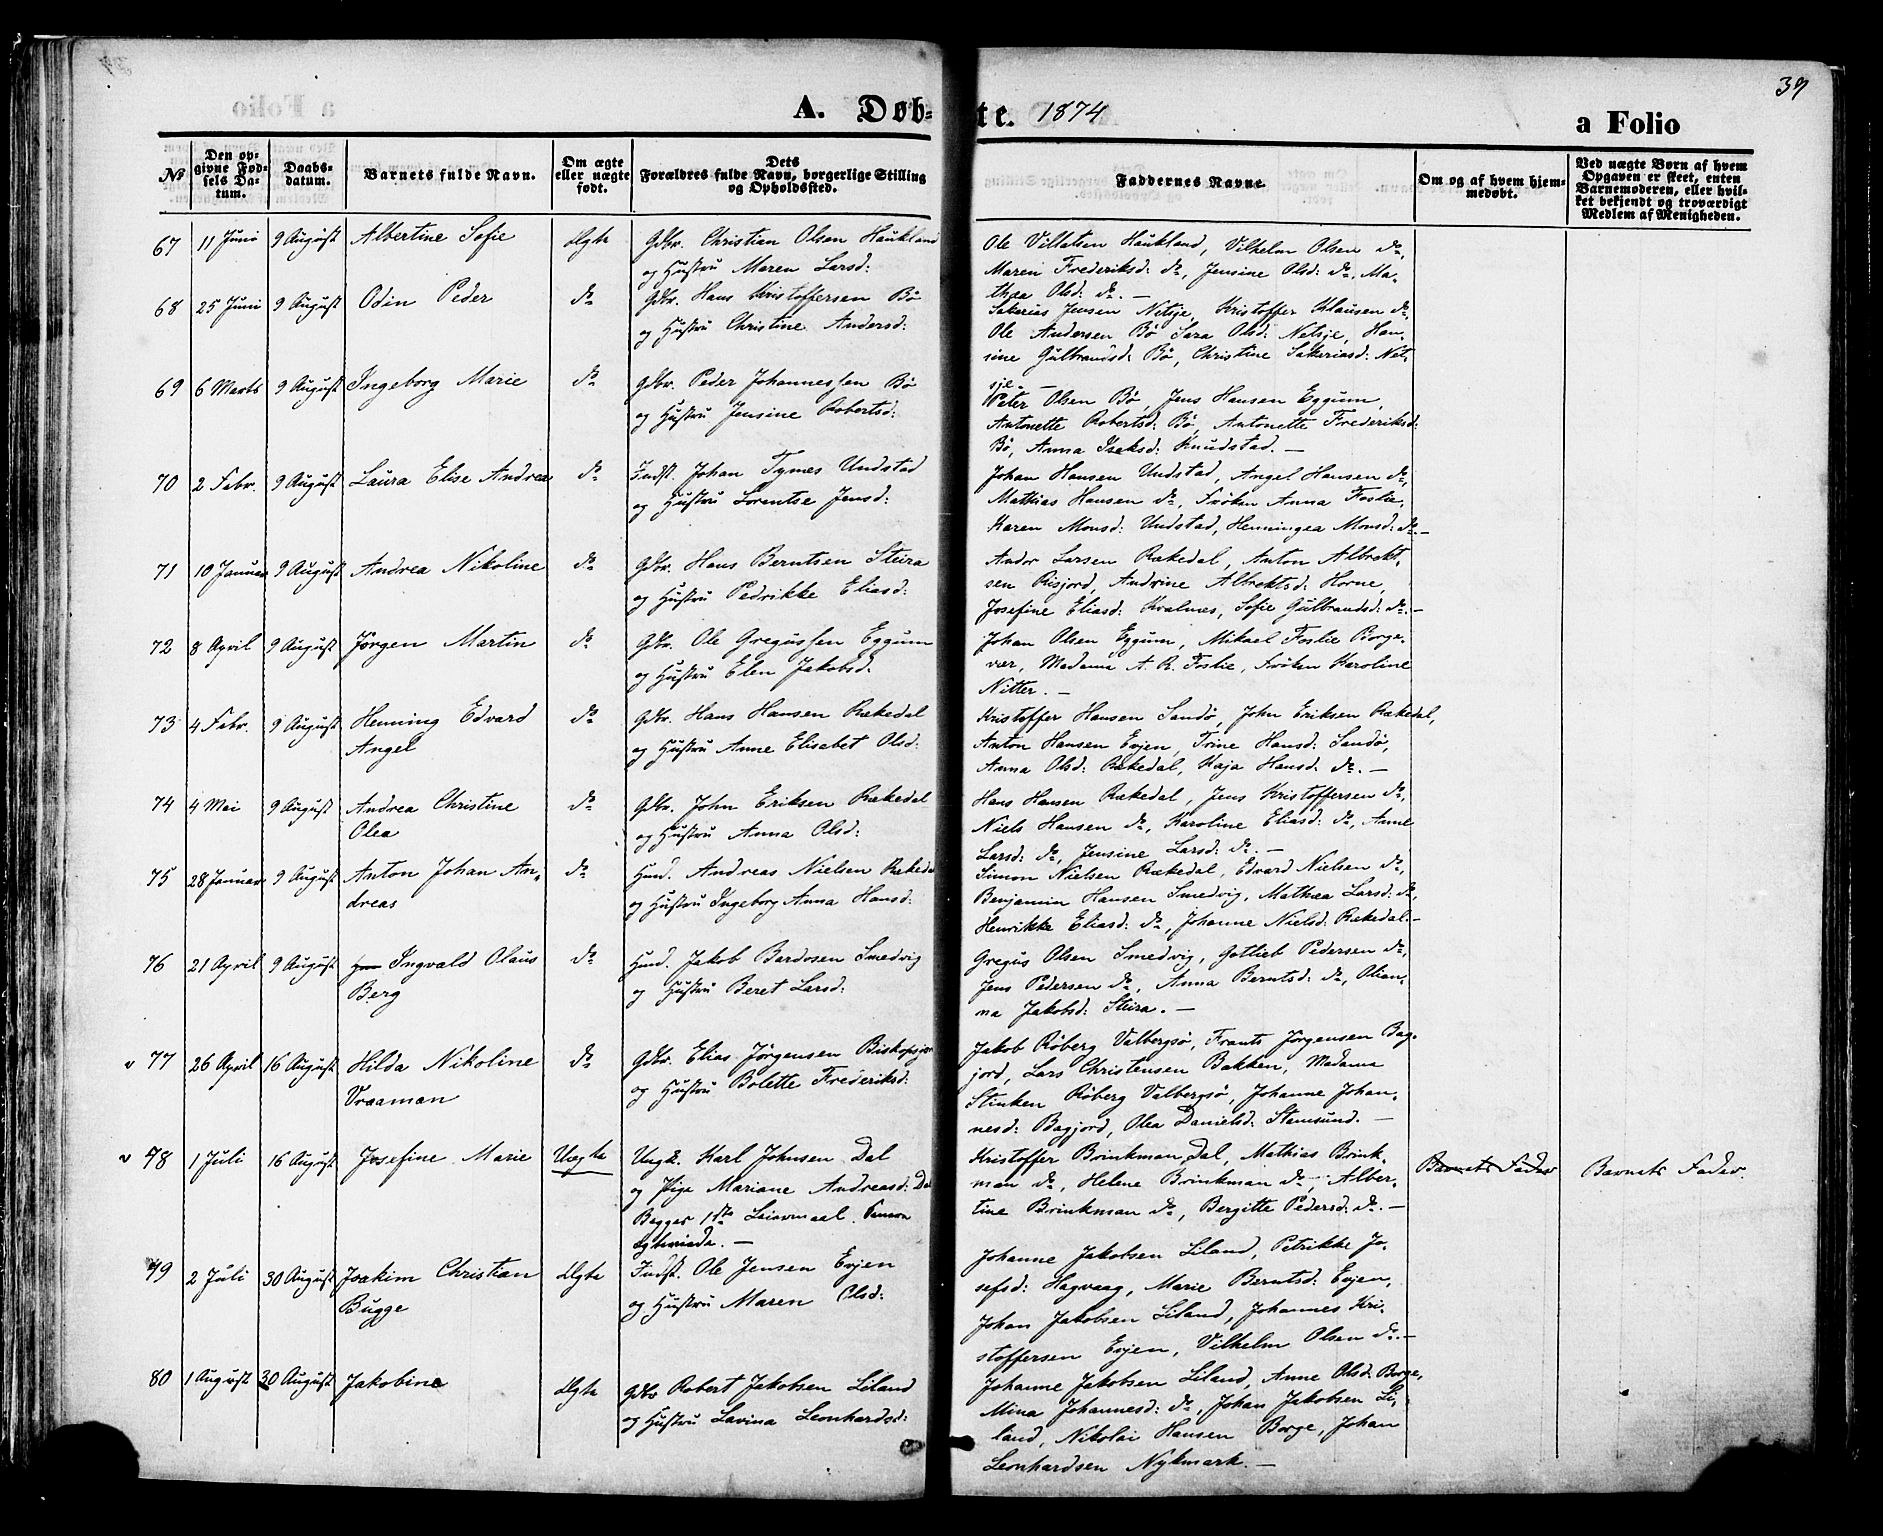 39
a Folio
A. Døb-
te. 1874
a Folio
No
Den op-
givne Fød-
sels Da-
tum.
Daabs-
datum.
Barnets fulde Navn.
Om ægte
eller uægte
født.
Dets
Forældres fulde Navn, borgerlige Stilling
og Opholdssted.
Faddernes Navne
Om og af hvem hjem-
medøbt.
Ved uægte Børn af hvem
Opgaven er skeet, enten
Barnemoderen, eller hvil-
ket bekjendt og troværdigt
Medlem af Menigheden.
67 11 Juni 9 August Albertine Sofie Ægte Gdbr. Christian Olsen Haukland
og Hustru Maren Larsd:
Ole Villatsen Haukland, Vilhelm Olsen do,
Maren Frederiksd: do, Jensine Olsd: do, Ma-
thea Olsd: do. —
68 25 Juni 9 August Odin Peder do Gdbr. Hans Kristoffersen Bø
og Hustru Christine Andersd:
Sakarias Jensen Netsje, Kristoffer Klausen do,
Ole Andersen Bø Sara Olsd: Netsje, Han-
sine Gulbrandsd: Bø, Christine Sakariasd: Net-
sje. —
69 6 Marts 9 August Ingeborg Marie do Gdbr. Peder Johannessen Bø
og Hustru Jensine Robertsd:
Peter Olsen Bø, Jens Hansen Eggum,
Antonette Robertsd: Bø, Antonette Frederiksd:
Bø, Anna Isaksd: Knudstad. —
70 2 Febr. 9 August Laura Elise Andrea do Indst. Johan Tymes Undstad
og Hustru Lorentse Jensd:
Johan Hansen Undstad, Angel Hansen do,
Mathias Hansen do, Frøken Anna Foslie,
Karen Monsd: Undstad, Henningea Monsd: do. —
71 10 Januar 9 August Andrea Nikoline do Gdbr. Hans Berntsen Steira
og Hustru Pedrikke Eliasd:
Andor Larsen Rækedal, Anton Albrekt-
sen Risjord, Andrine Albrektsd: Horne,
Josefine Eliasd: Kvalnes, Sofie Gulbrandsd: do. —
72 8 April 9 August Jørgen Martin do Gdbr. Ole Gregussen Eggum
og Hustru Elen Jakobsd:
Johan Olsen Eggum, Mikael Foslie Borge-
vær, Madame A. R. Foslie, Frøken Karoline
Nitter. —
73 4 Febr. 9 August Henning Edvard
Angel do Gdbr. Hans Hansen Rækedal
og Hustru Anne Elisabet Olsd:
Kristoffer Hansen Sandø, John Eriksen Rækedal,
Anton Hansen Evjen, Trine Hansd: Sandø,
Anna Olsd: Rækedal, Kaja Hansd: do. —
74 4 Mai 9 August Andrea Christine
Olea do Gdbr. John Eriksen Rækedal
og Hustru Anna Olsd:
Hans Hansen Rækedal, Jens Kristoffersen do,
Niels Hansen do, Karoline Eliasd: do, Anne
Larsd: do, Jensine Larsd: do. —
75 28 Januar 9 August Anton Johan An-
dreas do Husd. Andreas Nielsen Rækedal
og Hustru Ingeborg Anna Hansd:
Simon Nielsen Rækedal, Edvard Nielsen do,
Benjamin Hansen Smedvig, Mathea Larsd: do,
Henrikke Eliasd: do, Johanne Nielsd: Rækedal. —
76 21 April 9 August Ingvald Olaus
Berg do Husd. Jakob Bardosen Smedvig
og Hustru Beret Larsd:
Gregus Olsen Smedvig, Gotlieb Pedersen do,
Jens Pedersen do, Anna Berntsd: do, Olian-
na Jakobsd: Steira. —
v 77 26 April 16 August Hilda Nikoline
Vraaman do Gdbr. Elias Jørgensen
og Hustru Bolette Frederiksd:
Jakob Røberg Valbergsø, Frants Jørgensen Bag-
jord, Lars Christensen Bakken, Madame
Stinken Røberg Valbergsø, Johanne Johan-
nesd: Bagjord, Olea Danielsd: Stamsund. —
v 78 1 Juli 16 August Josefine Marie Uægte Ungk. Karl Johnsen Dal
og Pige Mariane Andreasd: Dal
Begges 1ste Leiermaal.
Kristoffer Brinkman Dal, Mathias Brink-
man do, Helene Brinkman do, Alber-
tine Brinkman do, Bergitte Pedersd: do. —
Barnets Fader
Barnets Fader.
79 2 Juli 30 August Joakim Christian
Bugge Ægte Indst. Ole Jensen Evjen
og Hustru Maren Olsd:
Johanne Jakobsen Liland, Petrikke Jo-
sefsd: Hagvaag, Marie Berntsd: Evjen,
Johan Jakobsen Liland, Johannes Kri-
stoffersen Evjen, Vilhelm Olsen do. —
80 1 August 30 August Jakobine Ægte Gdbr Robert Jakobsen Liland
og Hustru Lavina Leonhardsd:
Johanne Jakobsen Liland, Anne Olsd: Borge,
Mina Johannesd: do, Johan Jakobsen Li-
land, Nikolai Hansen Borge, Johan
Leonhardsen Nykmark. —